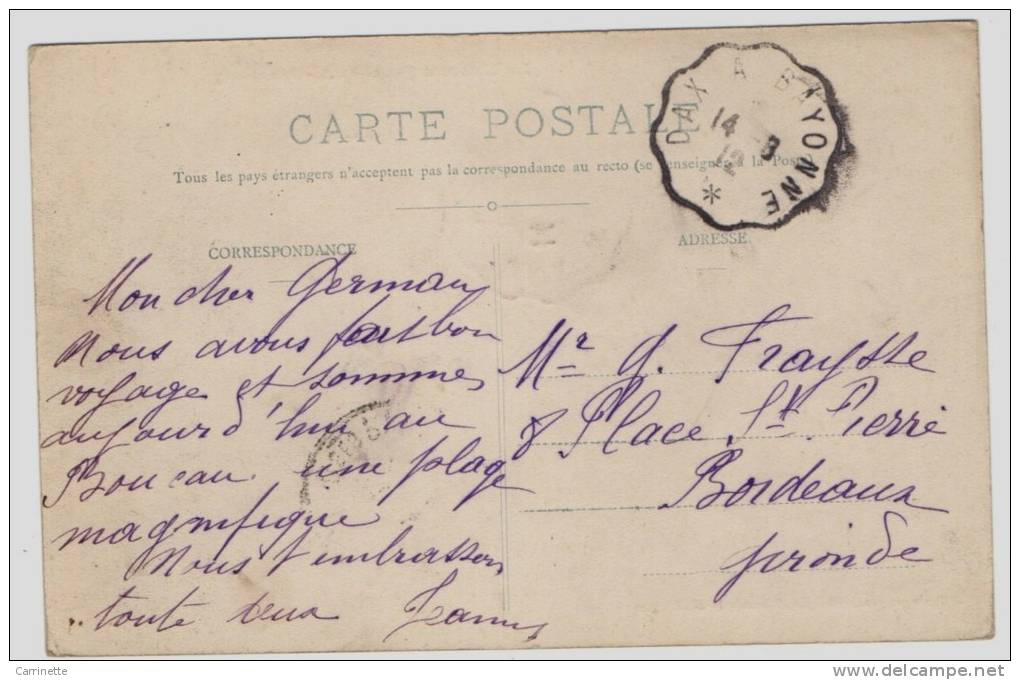 CARTE POSTALE
Tous les pays étrangers n'acceptent pas la correspondance au recto (se renseigner à la Poste)
DAX A BAYONNE
14 -8
12
CORRESPONDANCE
ADRESSE
Mon cher Germain
Nous avons fait bon
voyage et sommes
aujourd'hui au
Boucau une plage
magnifique
Nous t'embrassons
toute deux Jeanne
Mr G. Fraysse
8 Place St. Pierre
Bordeaux
gironde
Carrinette
delcampe.net